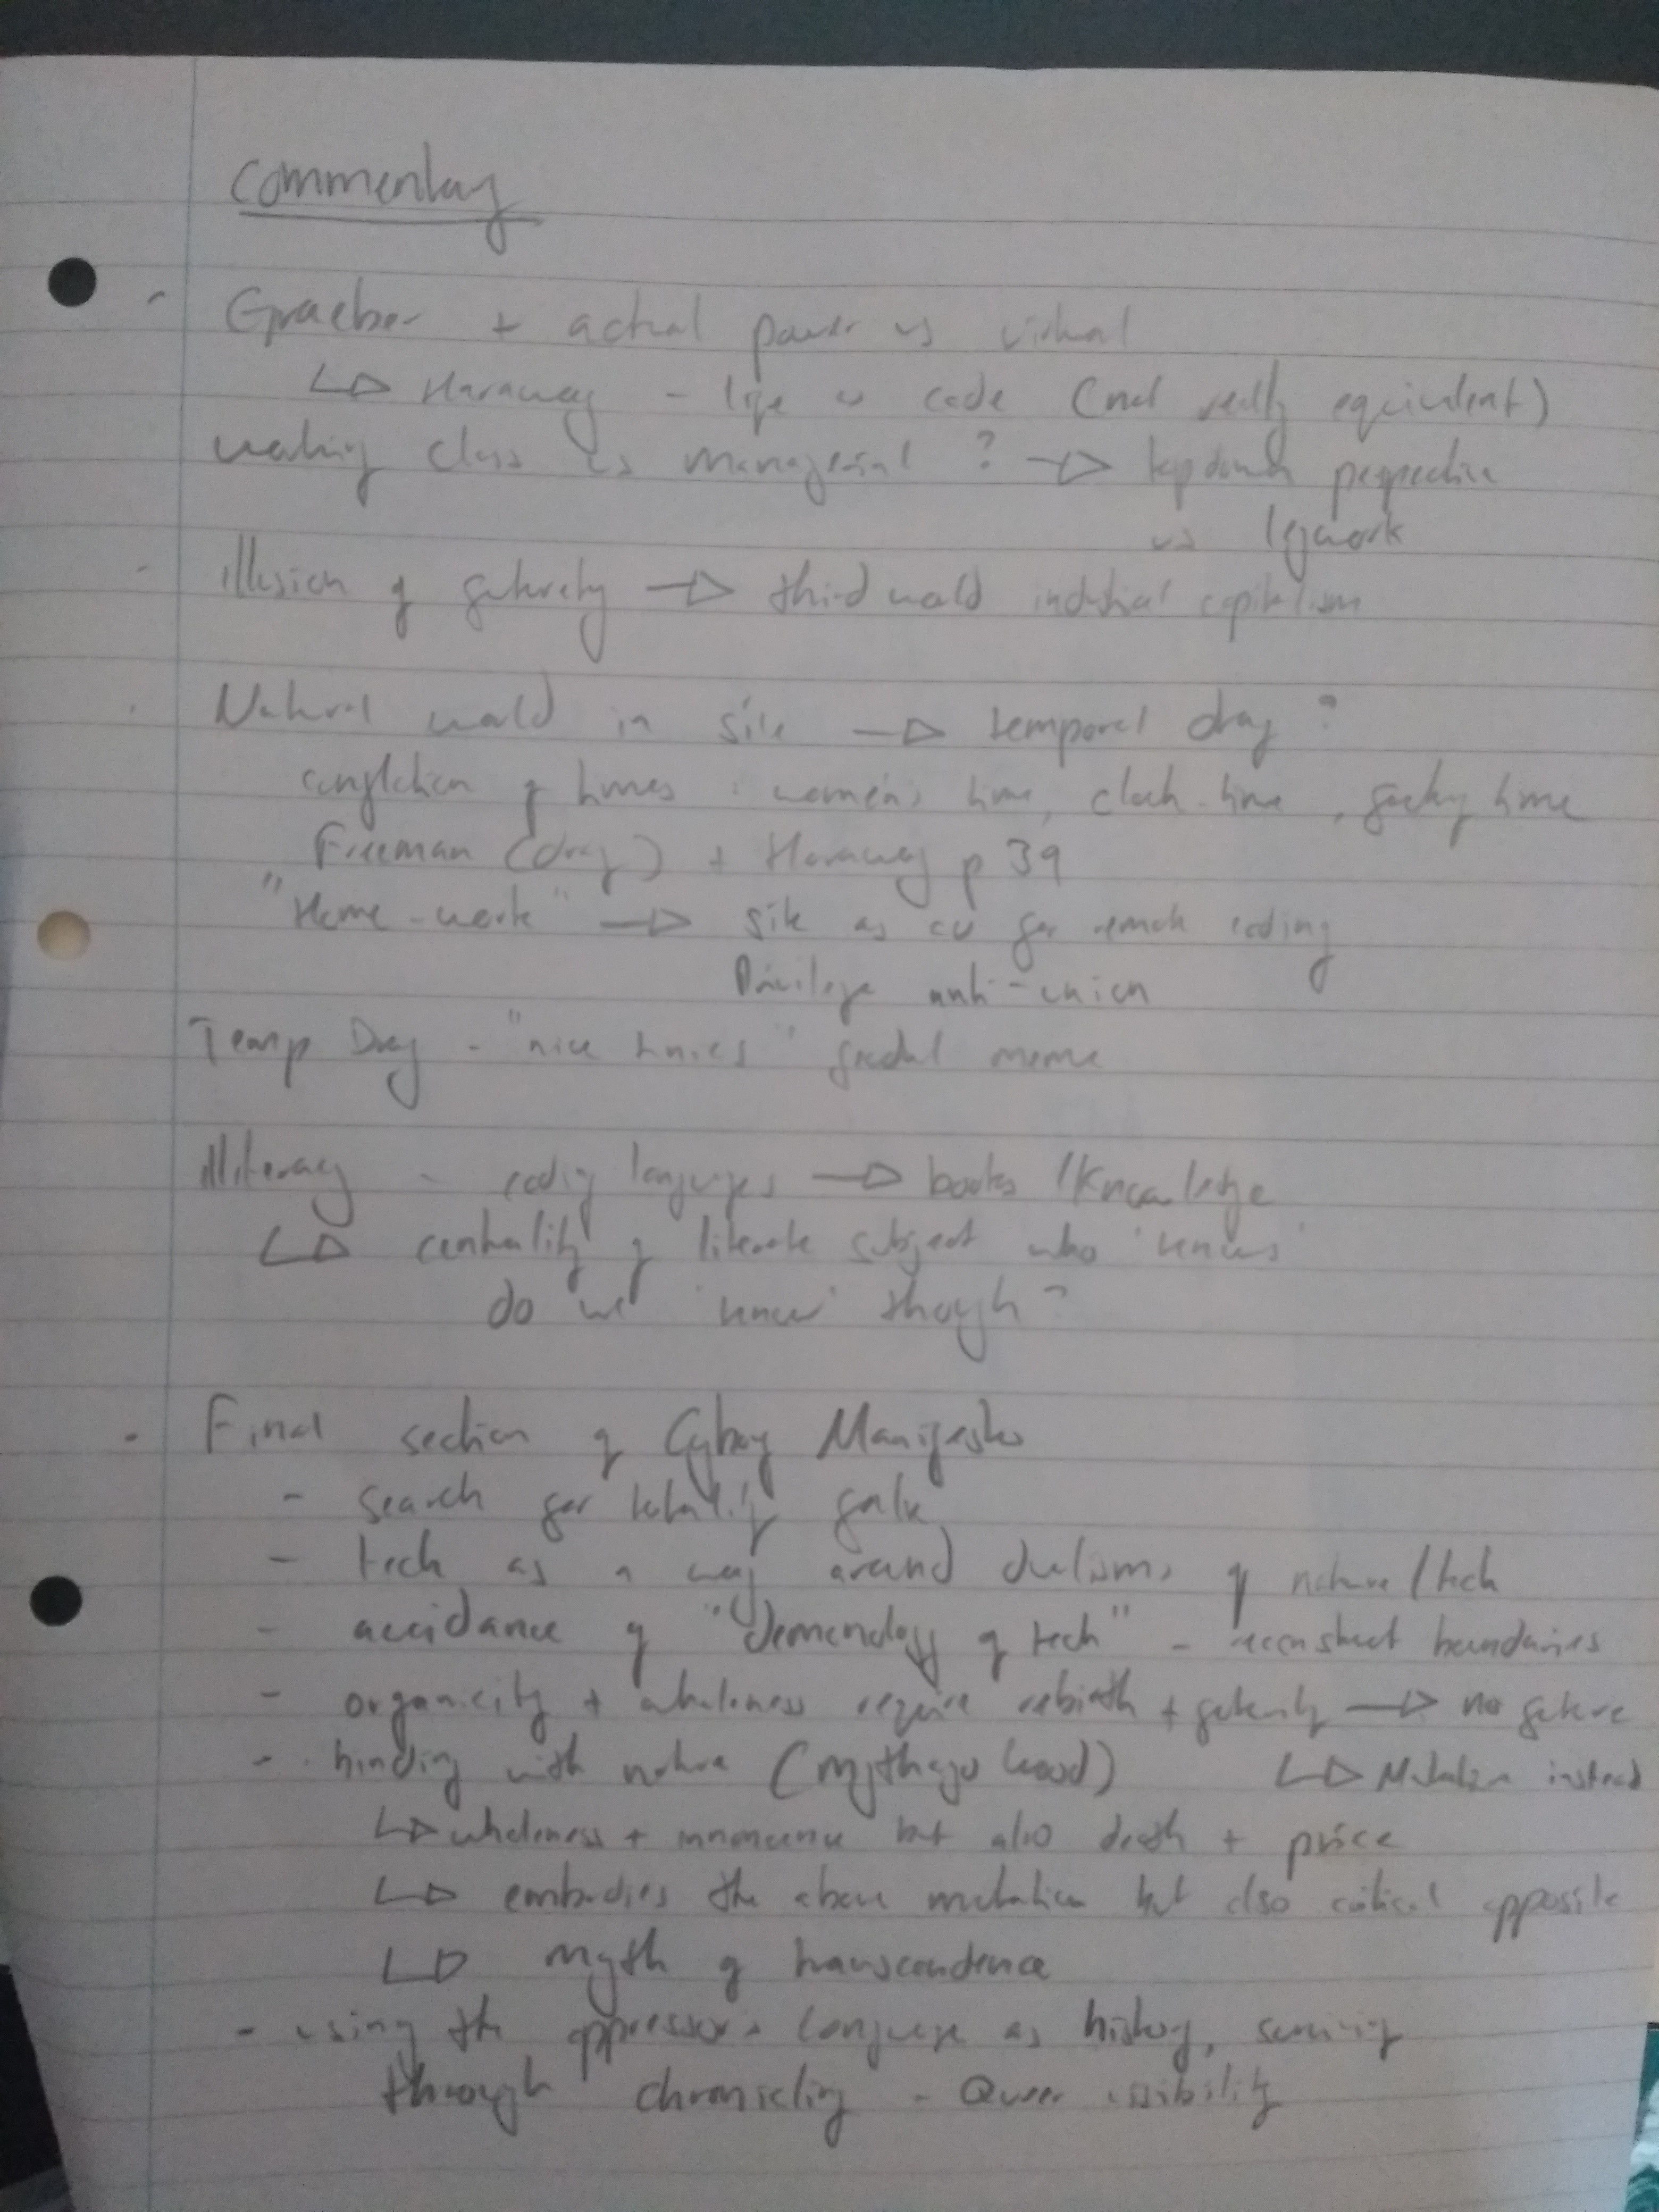 Commentary
- Graeber + actual power vs virtual
↳ Haraway - life as code (not really equivalent)
working class vs managerial ? → top down perspective
vs legwork
- illusion of futurity → third world industrial capitalism
- Natural world in site → temporal drag ?
conflation of times : women's time, clock-time, factory time
Freeman (drag) + Haraway p 39
"Home-work" → site as CV for remote coding
Privilege anti-union
Temp Drag - "nice tries" meme
illiteracy - coding languages → books / knowledge
↳ centrality of literate subject who 'knows'
do we 'know' though?
- Final section of Cyborg Manifesto
- search for totality
- tech as a way around dualisms of nature / tech
- avoidance of "demonology of tech" - reconstruct boundaries
- organicity + wholeness require rebirth + futurity → no future
- binding with nature (mythago wood) ↳ Mutation instead
↳ wholeness + innocence but also death + price
↳ embodies the above mutation but also critical opposite
↳ myth of transcendence
- using the oppressors language as history,
through chronicling - Queer visibility